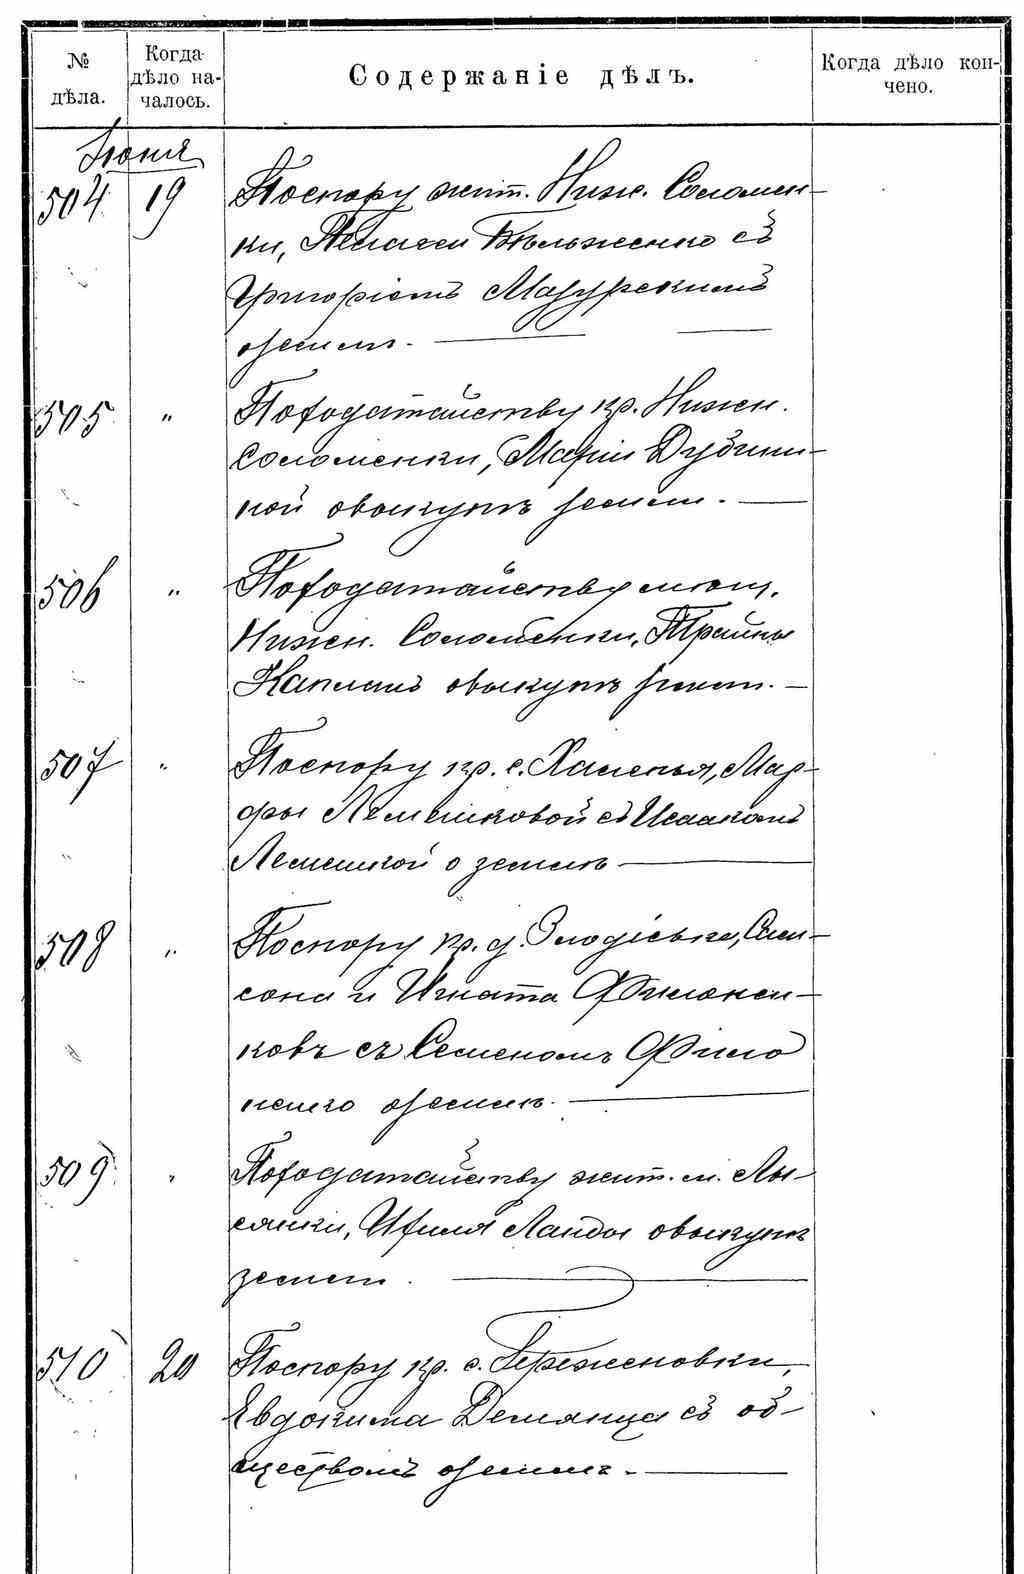 № дѣла.
Когда дѣло началось.
Содержаніе дѣлъ.
Когда дѣло кончено.
Іюня
504 19 По спору жит. Ниж. Соломен-
ки, Пелагеи Бѣльженко съ
Григоріемъ Мазурскимъ
о землѣ.
505 " По ходатайству кр. Нижн.
Соломенки, Маріи Дубин-
кой о выкупѣ земли.
506 " По ходатайству мѣщ.
Нижн. Соломенки,
Капланъ о выкупѣ земли.
507 " По спору кр. с. Халепья, Мар-
фы Лемешковой съ Исаакомъ
Лемешкой о землѣ
508 " По спору кр. д. Злодіевки, Сам-
сона и Игната Филонен-
ковъ съ Семеномъ Фило
ненко о землѣ.
509 " По ходатайству жит. м. Лы-
сянки, Ицѣля Ланды о выкупѣ
земли.
510 20 По спору кр. с. Гереженовки,
Евдокима Демянца съ об-
ществомъ о землѣ.